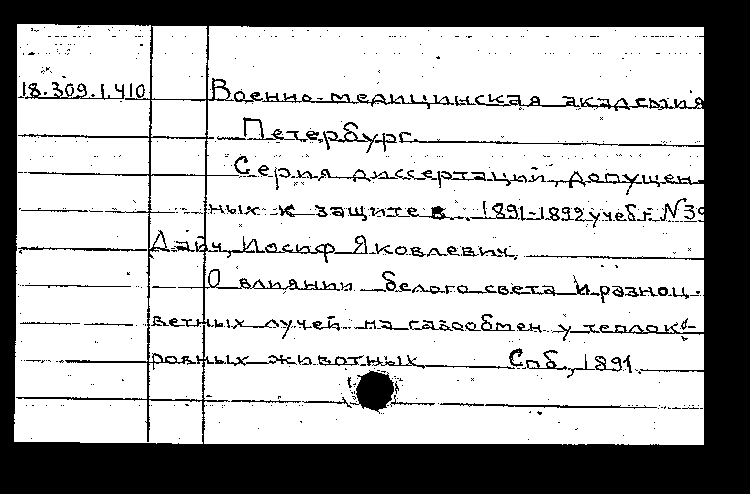 18.309.1.410 Военно-медицинская академия
Петербург.
Серия диссертаций, допущен-
ных к защите в 1891-1892 учеб.г. N39
Дайч, Иосиф Яковлевич.
О влиянии белого света и разноц-
ветных лучей на газообмен у теплок-
ровных животных. Спб., 1891.